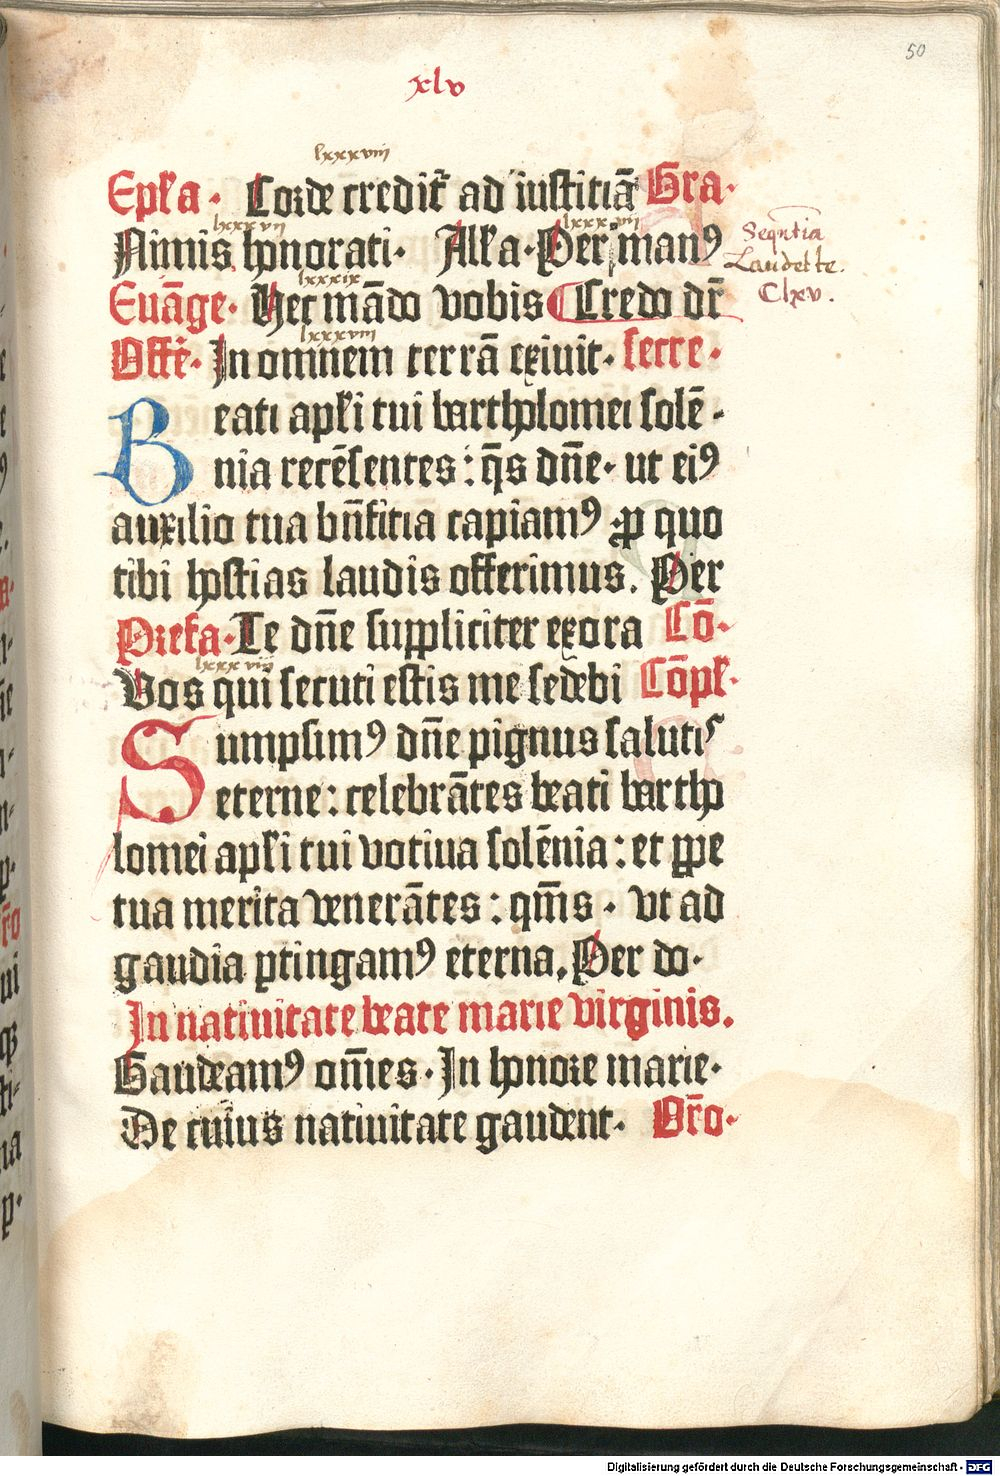 50
xlv
lxxxviii
Epl̄a. Corde credit̉ ad iusticiā Gra.
lxxxvii lxxxviii
Nimis honorati. All̄a. Per man⁹
Seqn̄tia
Laudet te.
Clxv.
lxxxix
Euāge. Hec mādo vobis Credo dr̄
lxxxviii
Offē. In omnem terrā exiuit. secre.
Beati apl̄i tui bartholomei solē.
nia recēsentes: q̄s dn̄e. ut ei⁹
auxilio tua bn̄ficia capiam⁹ ꝓ quo
tibi hostias laudis offerimus. Per
Prefa. Te dn̄e suppliciter exora Cō.
lxxxviii
Vos qui secuti estis me sedebi Cōpl̄.
Sumpsim⁹ dn̄e pignus saluti⸗
eterne: celebrātes beati bartho
lomei apl̄i tui votiua solēnia: et ꝑpe
tua merita venerātes: qm̄s. vt ad
gaudia ꝑtingam⁹ eterna, Per do.
In natiuitate beate marie virginis.
Gaudeam⁹ om̄es. In honore marie.
De cuius natiuitate gaudent. Or̄o.
Digitalisierung gefördert durch die Deutsche Forschungsgemeinschaft - DFG